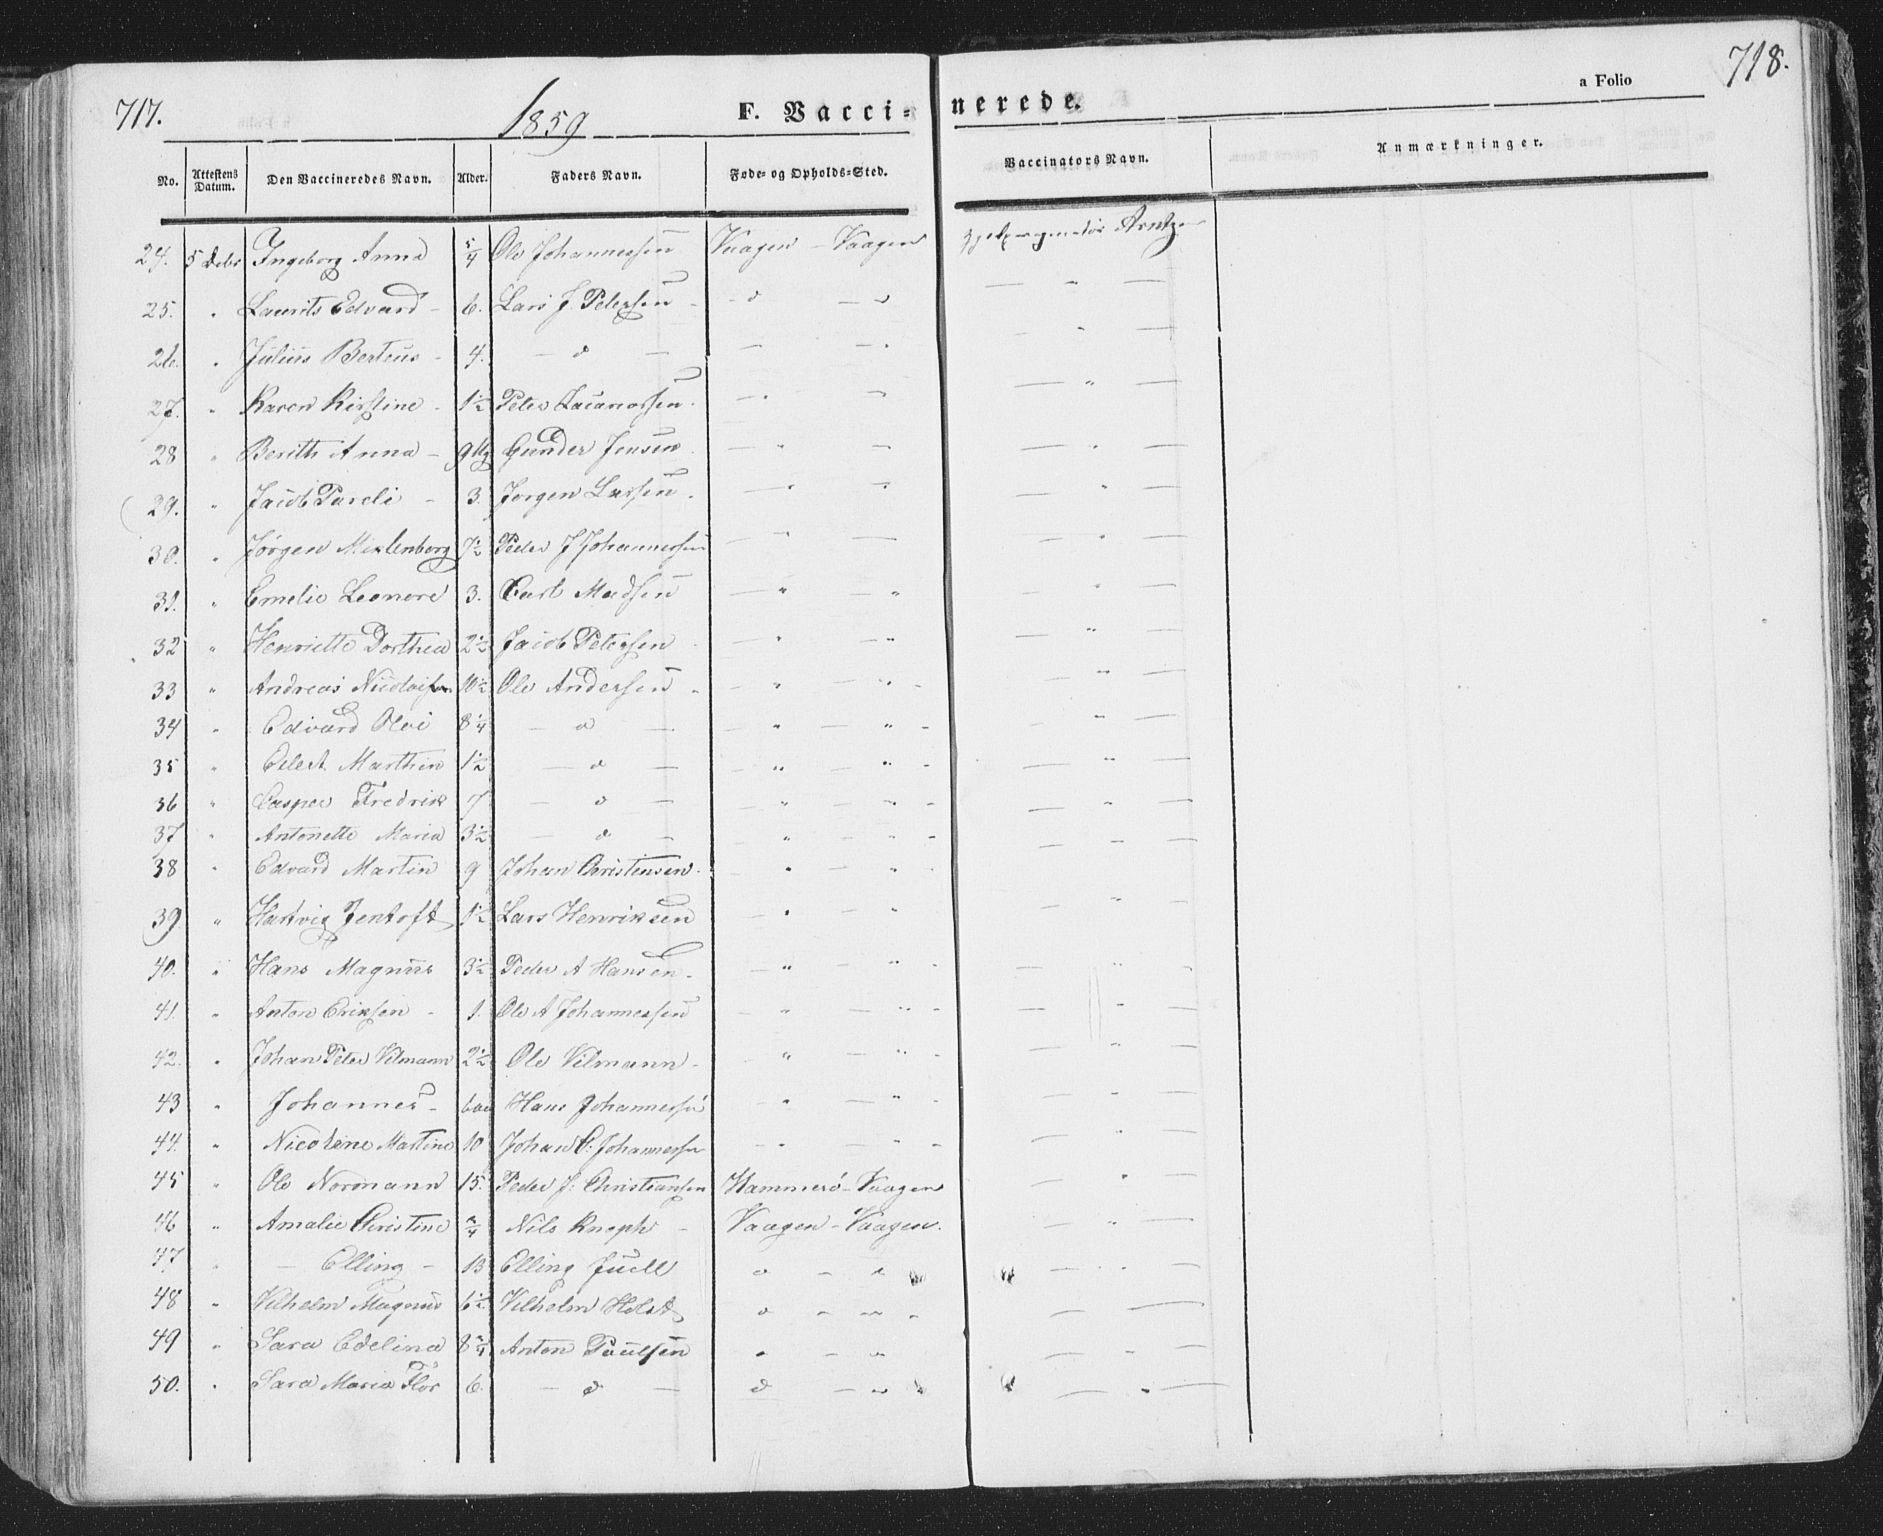 717.
1859
F. Vacci-
nerede.
a Folio
718.
No. Attestens Datum. Den Vaccineredes Navn. Alder. Faders Navn. Føde- og Opholds-Sted. Vaccinators Navn. Anmærkninger.
24. 5 Debr Ingeborg Anna 5/4 Ole Johannessen Vaagen - Vaagen Arntzen
25. " Laurits Edvard - 6. Lars J. Petersen - - d - " — " —
26. " Julius Berteus - 4. — d — — - " — " —
27. " Karen Kirstine - 1½ Peter - " — — " —
28 " Berith Anna - 9 Gunder Jensen - " — — " —
29. " Jacob Pareli - 3. Jørgen Larsen - — " — — " —
30. " Jørgen 7½ Peder J Johannessen - " — — " —
31. " Emelie Leonore 3. Carl Madsen — " " — " —
32 " Henriette Dorthea 2½ Jacob Petersen - — " - " — " —
33 " Andreas Nicolaisen 10½ Ole Andersen - - " - " - — " —
34 " Edvard Olai 8¼ — d — - " - " - — " —
35 " Celest Marthin 1½ — d — - " - " - — " —
36 " Casper Fredrik 7 — d — - " - " - — " —
37 " Antonette Maria 3½ — d — - " - " - — - —
38 " Edvard Martin 9 Johan Christensen - " - " - — " —
39 " Hartvig Jentoft 1½ Lars Henriksen - " - " - — " —
40. " Hans Magnus 3½ Peder A Hansen - - " - " - — " —
41. " Anton Eriksen - 1. Ole A Johannessen - " - " - — " —
42. " Johan Peter Vilmann 2½ Ole Vilmann - - " - " - — " —
43 " Johannes - Hans Johannessen - " - " - — " —
44. " Nicoline Martine 10 Johan C. Johannessen - " - " - — " —
45 " Ole Normann 15. Peder J. Christiansen Hammerø - Vaagen — " —
46 " Amalie Christine Nils Knoph - Vaagen - Vaagen. — " —
47 " - Elling - 13 Elling Juell d - d — " —
48 " Vilhelm Magnus 6½ Vilhelm Holst d - " - — —
49 " Sara Edelina 8 Anton Paulsen " - " — - —
50. " Sara Maria Flor 6. — d — d - " — " —